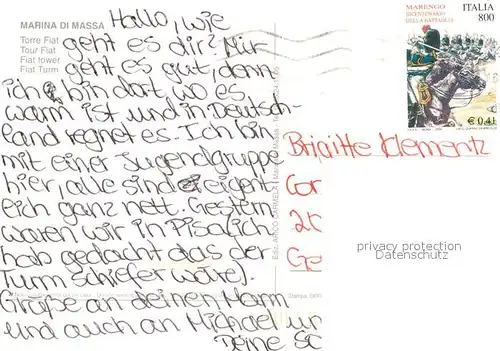 MARINA DI MASSA
Torre Fiat
Tour Fiat
Fiat tower
Fiat Turm
Hallo, wie
geht es dir? Mir
geht es gut, denn
ich bin dort, wo es
warm ist und in Deutsch-
land regnet es. Ich bin
mit einer Jugendgruppe
hier, alle sind eigent
lich ganz nett. Gestern
waren wir in Pisa (ich
hab gedacht das der
Turm schiefer wäre).
Grüße an deinen Mann
und auch an Michael un
Deine Sc
MARENGO
BICENTENARIO
DELLA BATTAGLIA
ITALIA
800
€ 0,41
Brigitte Klementz
Cor
20
Ge
privacy protection
Datenschutz